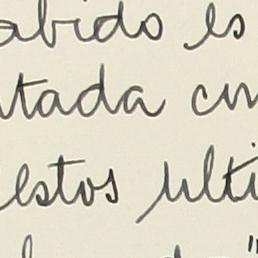 abido es
tada
estos ulti